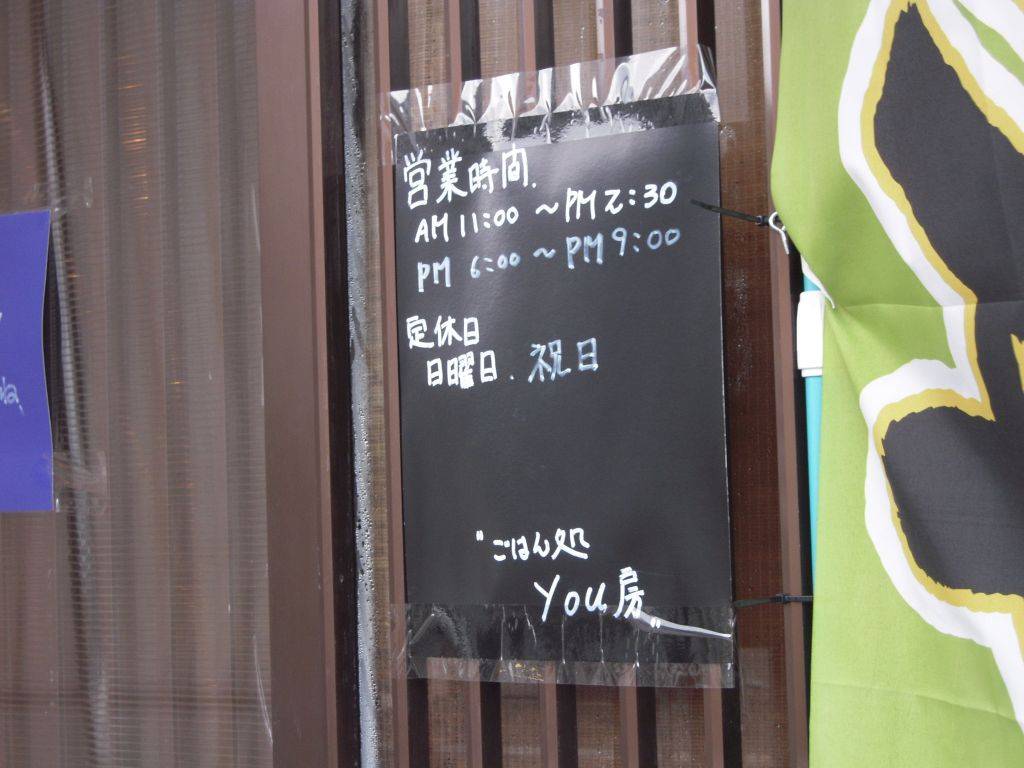 営業時間.
AM 11:00 〜 PM 2:30
PM 6:00 〜 PM 9:00
定休日
日曜日. 祝日
"ごはん処
You房"